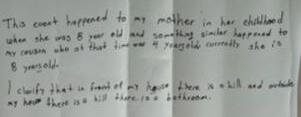 This event happened to my mother in her childhood
when she was 8 year old and something similar happened to
my cousin who at that time was 4 years old currently she is
8 years old.
I clarify that in front of my house there is a hill and outside
my house there is a hill there is a bathroom.